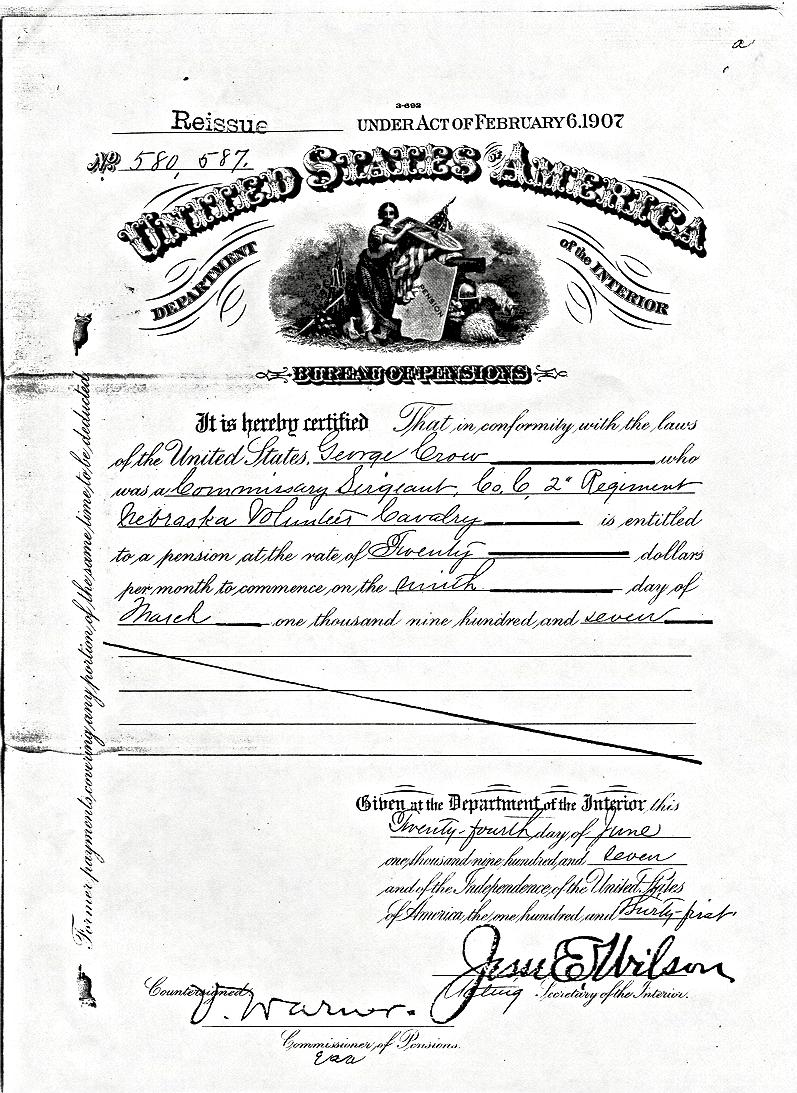 a
3-692
Reissue UNDER ACT OF FEBRUARY 6. 1907
No. 580, 587.
UNITED STATES OF AMERICA
DEPARTMENT of the INTERIOR
PENSION
BUREAU OF PENSIONS
It is hereby certified That in conformity with the laws
of the United States, George Crow who
was a Commissary Sergeant, Co. C, 2" Regiment
Nebraska Volunteer Cavalry is entitled
to a pension at the rate of Twenty dollars
per month to commence on the ninth day of
March one thousand nine hundred and seven
Former payments covering any portion of the same time to be deducted.
Given at the Department of the Interior this
Twenty-fourth day of June
one thousand nine hundred and seven
and of the Independence of the United States
of America, the one hundred and Thirty-first.
Jesse E Wilson
Acting Secretary of the Interior.
Countersigned
V. Warner.
Commissioner of Pensions.